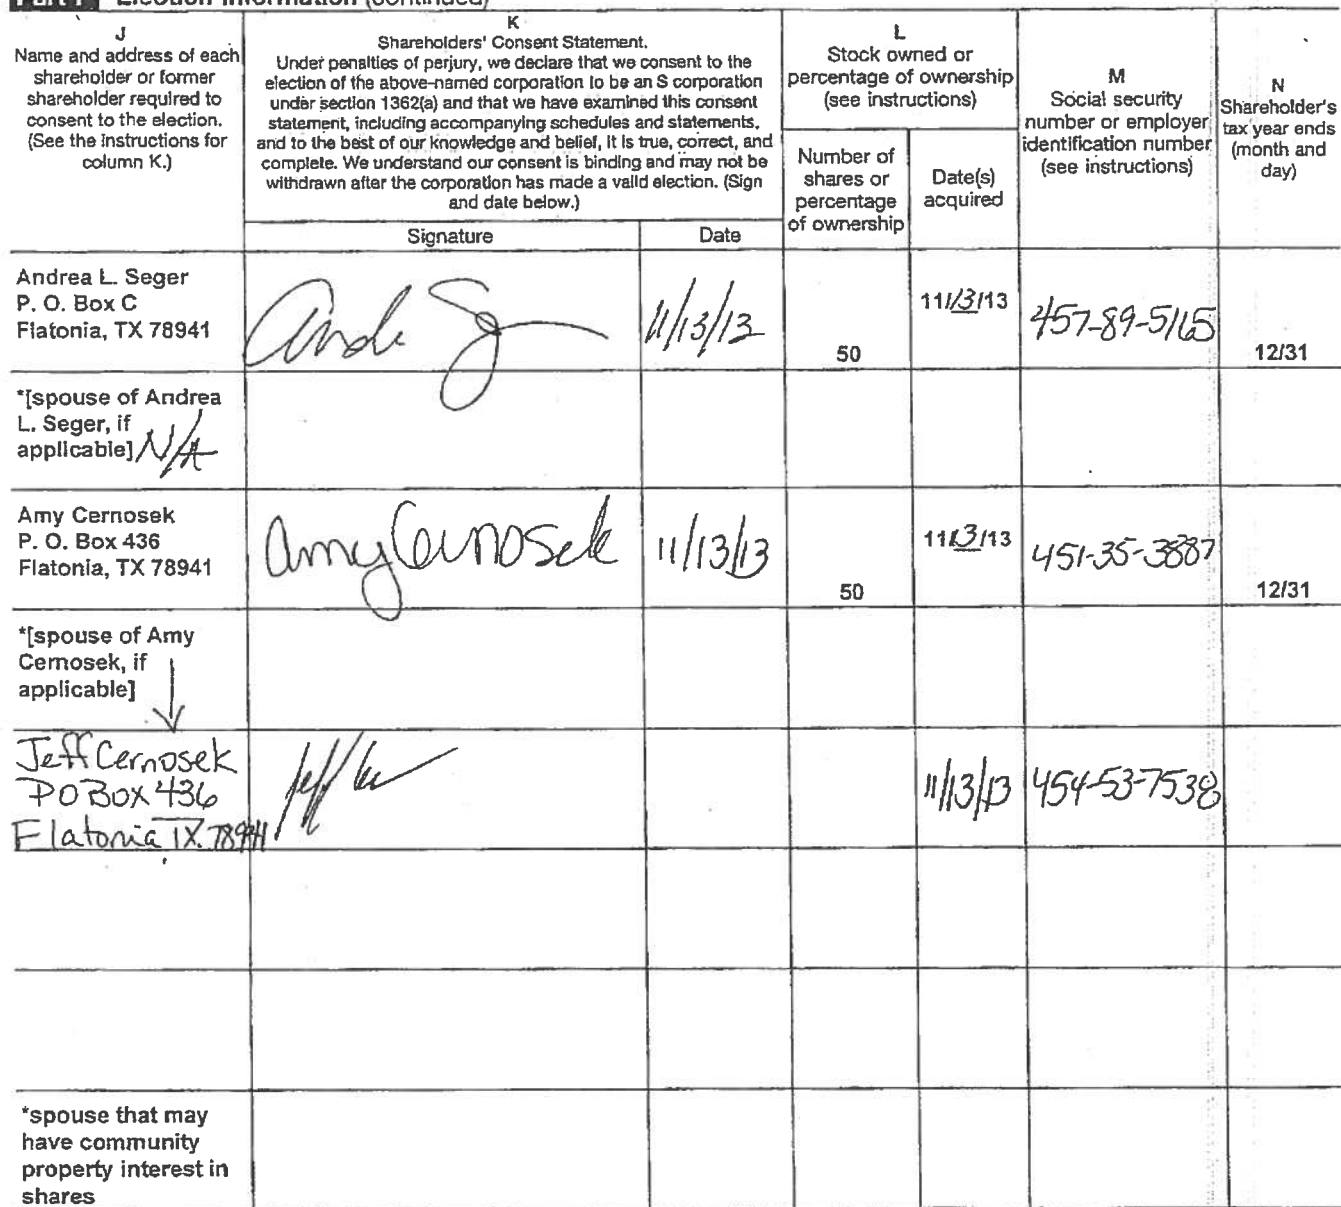 Part I Election Information (continued)
J
Name and address of each
shareholder or former
shareholder required to
consent to the election.
(See the instructions for
column K.)
K
Shareholders' Consent Statement.
Under penalties of perjury, we declare that we consent to the
election of the above-named corporation to be an S corporation
under section 1362(a) and that we have examined this consent
statement, including accompanying schedules and statements,
and to the best of our knowledge and belief, it is true, correct, and
complete. We understand our consent is binding and may not be
withdrawn after the corporation has made a valid election. (Sign
and date below.)
Signature
Date
L
Stock owned or
percentage of ownership
(see instructions)
Number of
shares or
percentage
of ownership
Date(s)
acquired
M
Social security
number or employer
identification number
(see instructions)
N
Shareholder's
tax year ends
(month and
day)
Andrea L. Seger
P. O. Box C
Flatonia, TX 78941
11/13/13
50
11/13/13
457-89-5165
12/31
*[spouse of Andrea
L. Seger, if
applicable] N/A
Amy Cernosek
P. O. Box 436
Flatonia, TX 78941
Amy Cernosek
11/13/13
50
11/13/13
451-35-3887
12/31
*[spouse of Amy
Cernosek, if
applicable]
Jeff Cernosek
PO Box 436
Flatonia TX. 78941
11/13/13
454-53-7538
*spouse that may
have community
property interest in
shares